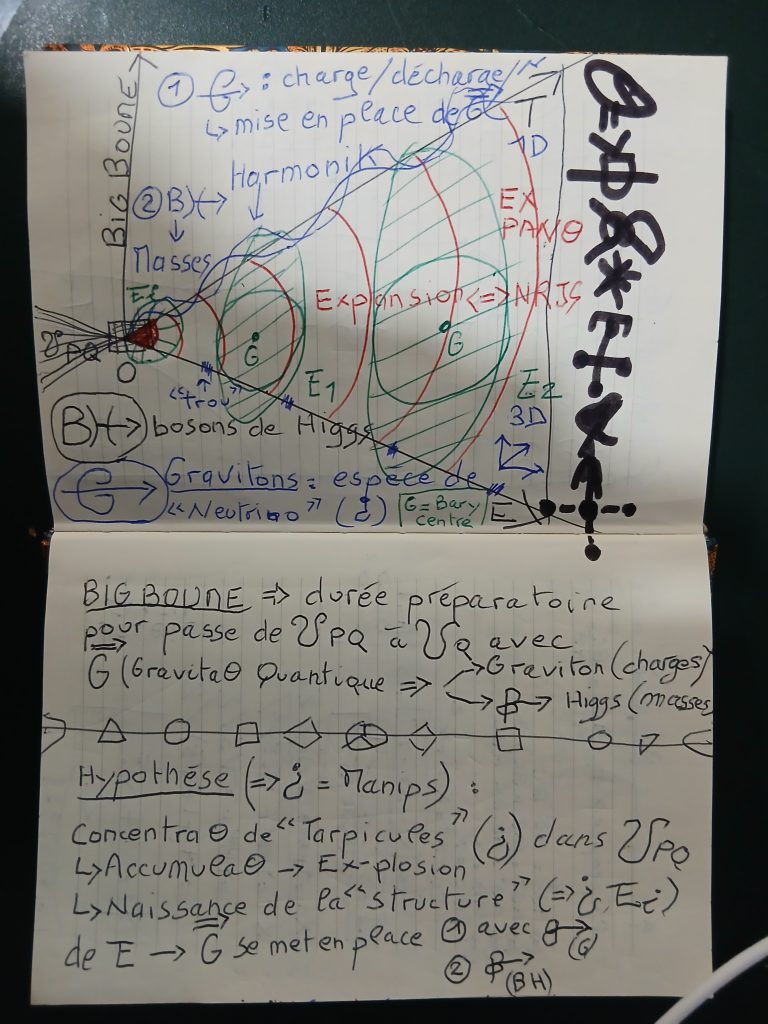 BIG BOUNE
① G→ : charge/décharge/N
↳ mise en place de G
Harmonik
② B)(→
↓
Masses
T
1D
EX
PANθ
Expansion <=> NRJS
PQ
O
G
G
E1
E2
3D
"Strou"
B)(→ bosons de Higgs
G→ Gravitons = espèce de
"Neutrino" (¿) G = Bary
centre
E
BIG BOUNE => durée préparatoire
pour passe de PQ à Q avec
G (Gravitaθ Quantique => → Graviton (charges)
→ B→ Higgs (masses
Hypothése (=> ¿ = Manips) :
Concentraθ de "Tarpicules" (¿) dans PQ
↳ Accumulaθ → Ex-plosion
↳ Naissance de la "structure" (=> ¿, Ei)
de E → G se met en place ① avec (G)
② B→ (BH)